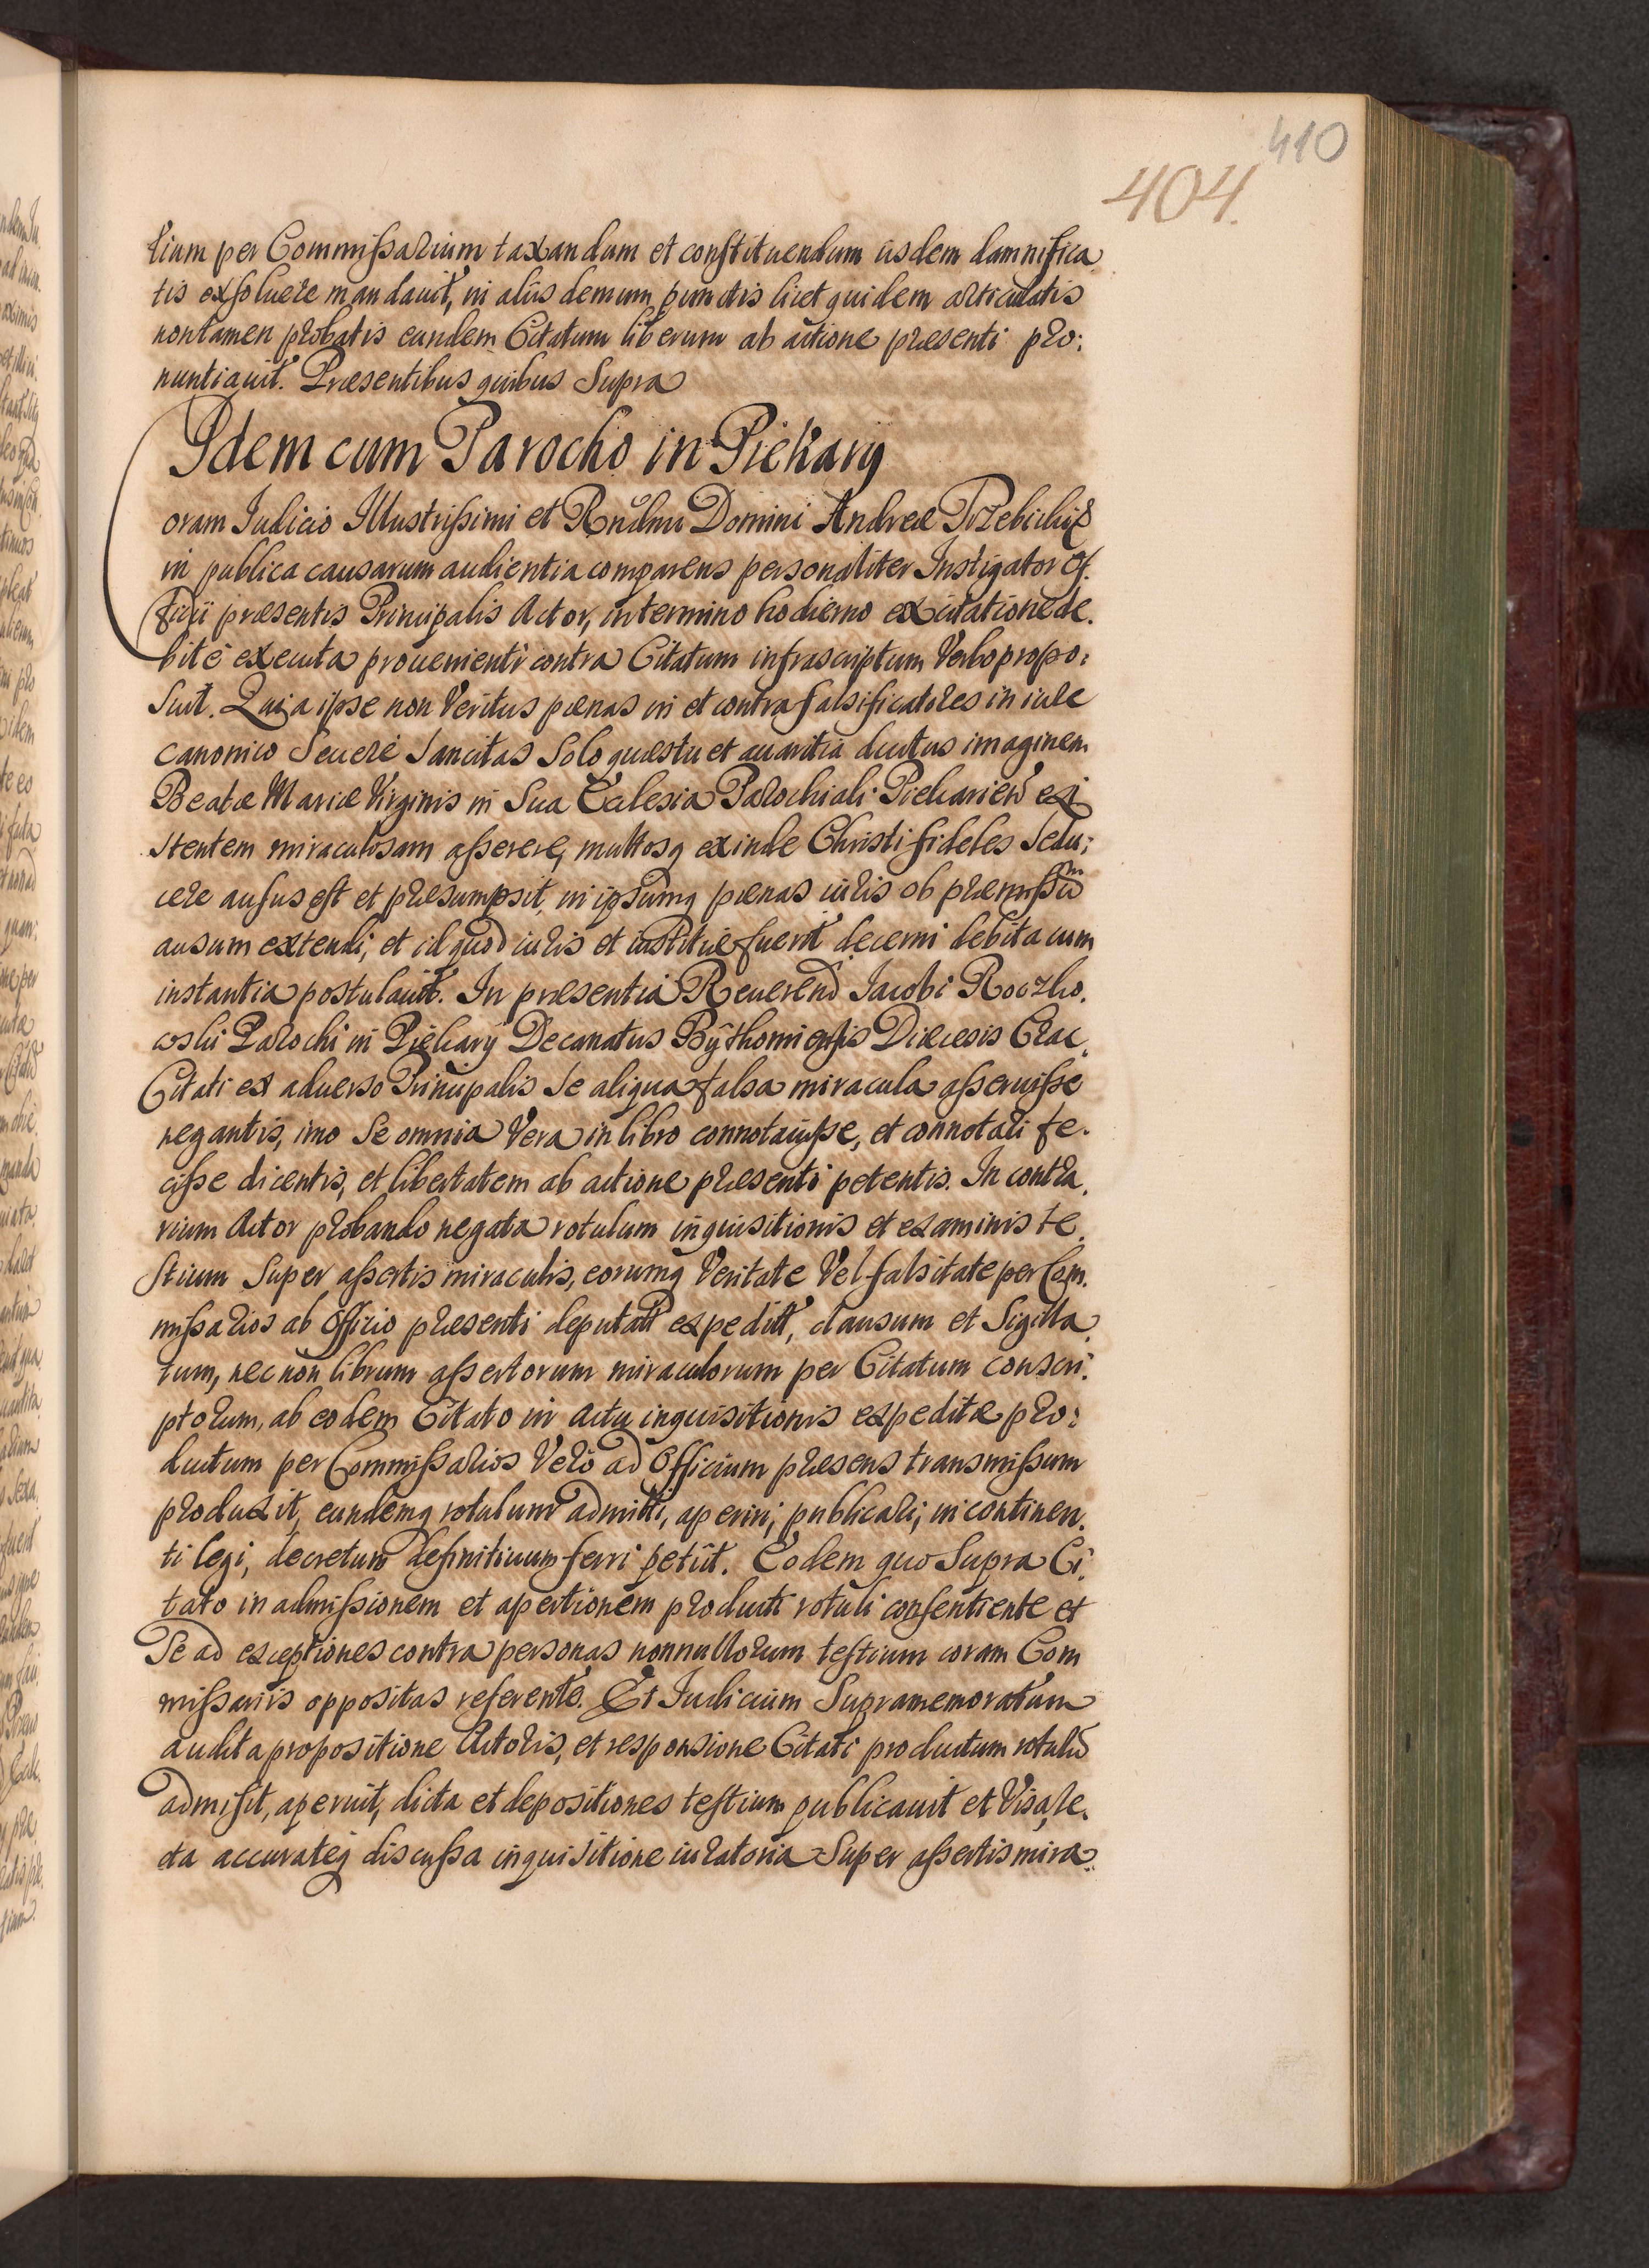 410
404.
tium per Commissarium taxandum et constituendum iisdem damnifica
tis exsoluere mandauit, in aliis demum punctis licet quidem articulatis
nontamen probatis eundem Citatum liberum ab actione præsenti pro:
nuntiauit. Præsentibus quibus Supra
Idem cum Parocho in Piekary
Coram Iudicio Illustrissimi et Rndmi Domini Andreæ Trzebicki &
in publica causarum audientia comparens personaliter Instigator Of.
ficii præsentis Principalis Actor, in termino hodierno ex citatione de.
bite executa prouenienti contra Citatum infrascriptum Verbo propo:
suit. Quia ipse non Veritus pœnas in et contra falsificatores in iure
canonico Seuere Sancitas Solo quæstu et auaritia ductus imaginem
Beatæ Mariæ Virginis in Sua Ecclesia Parochiali Piekarien exi
stentem miraculosam asserere, multosq exinde Christi fideles Sedu:
cere ausus est et præsumpsit, in ipsumq pœnas iuris ob præmissum
ausum extendi, et id quod iuris et iustitiæ fuerit decerni debita cum
instantia postulauit. In præsentia Reuerend Iacobi Roczko.
wski Parochi in Piekary Decanatus Bythomiensis Diæcesis Crac.
Citati ex aduerso Principalis Se aliqua falsa miracula asseruisse
negantis, imo Se omnia Vera in libro connotauisse, et connotari fe.
cisse dicentis, et libertatem ab actione præsenti petentis. In contra.
rium Actor probando negata rotulum inquisitionis et examinis te.
stium Super assertis miraculis, eorumq Veritate Vel falsitate per Com.
missarios ab Officio præsenti deputatt expeditt, clausum et Sigilla
tum, nec non librum assertorum miraculorum per Citatum conscri:
ptorum, ab eodem Citato in actu inquisitionis expeditæ pro:
ductum per Commissarios Vero ad Officium præsens transmissum
produxit, eundemq rotulum admitti, aperiri, publicari, in continen.
ti legi, decretum definitiuum ferri petiit. Eodem quo Supra Ci.
tato in admissionem et apertionem producti rotuli consentiente et
Se ad exceptiones contra personas nonnullorum testium coram Com
missariis oppositas referente. Et Iudicium Supramemoratum
audita propositione Actoris, et responsione Citati productum rotulū
admisit, aperuit, dicta et depositiones testium publicauit et Visa, le.
cta accurateq discussa inquisitione iuratoria Super assertis mira.